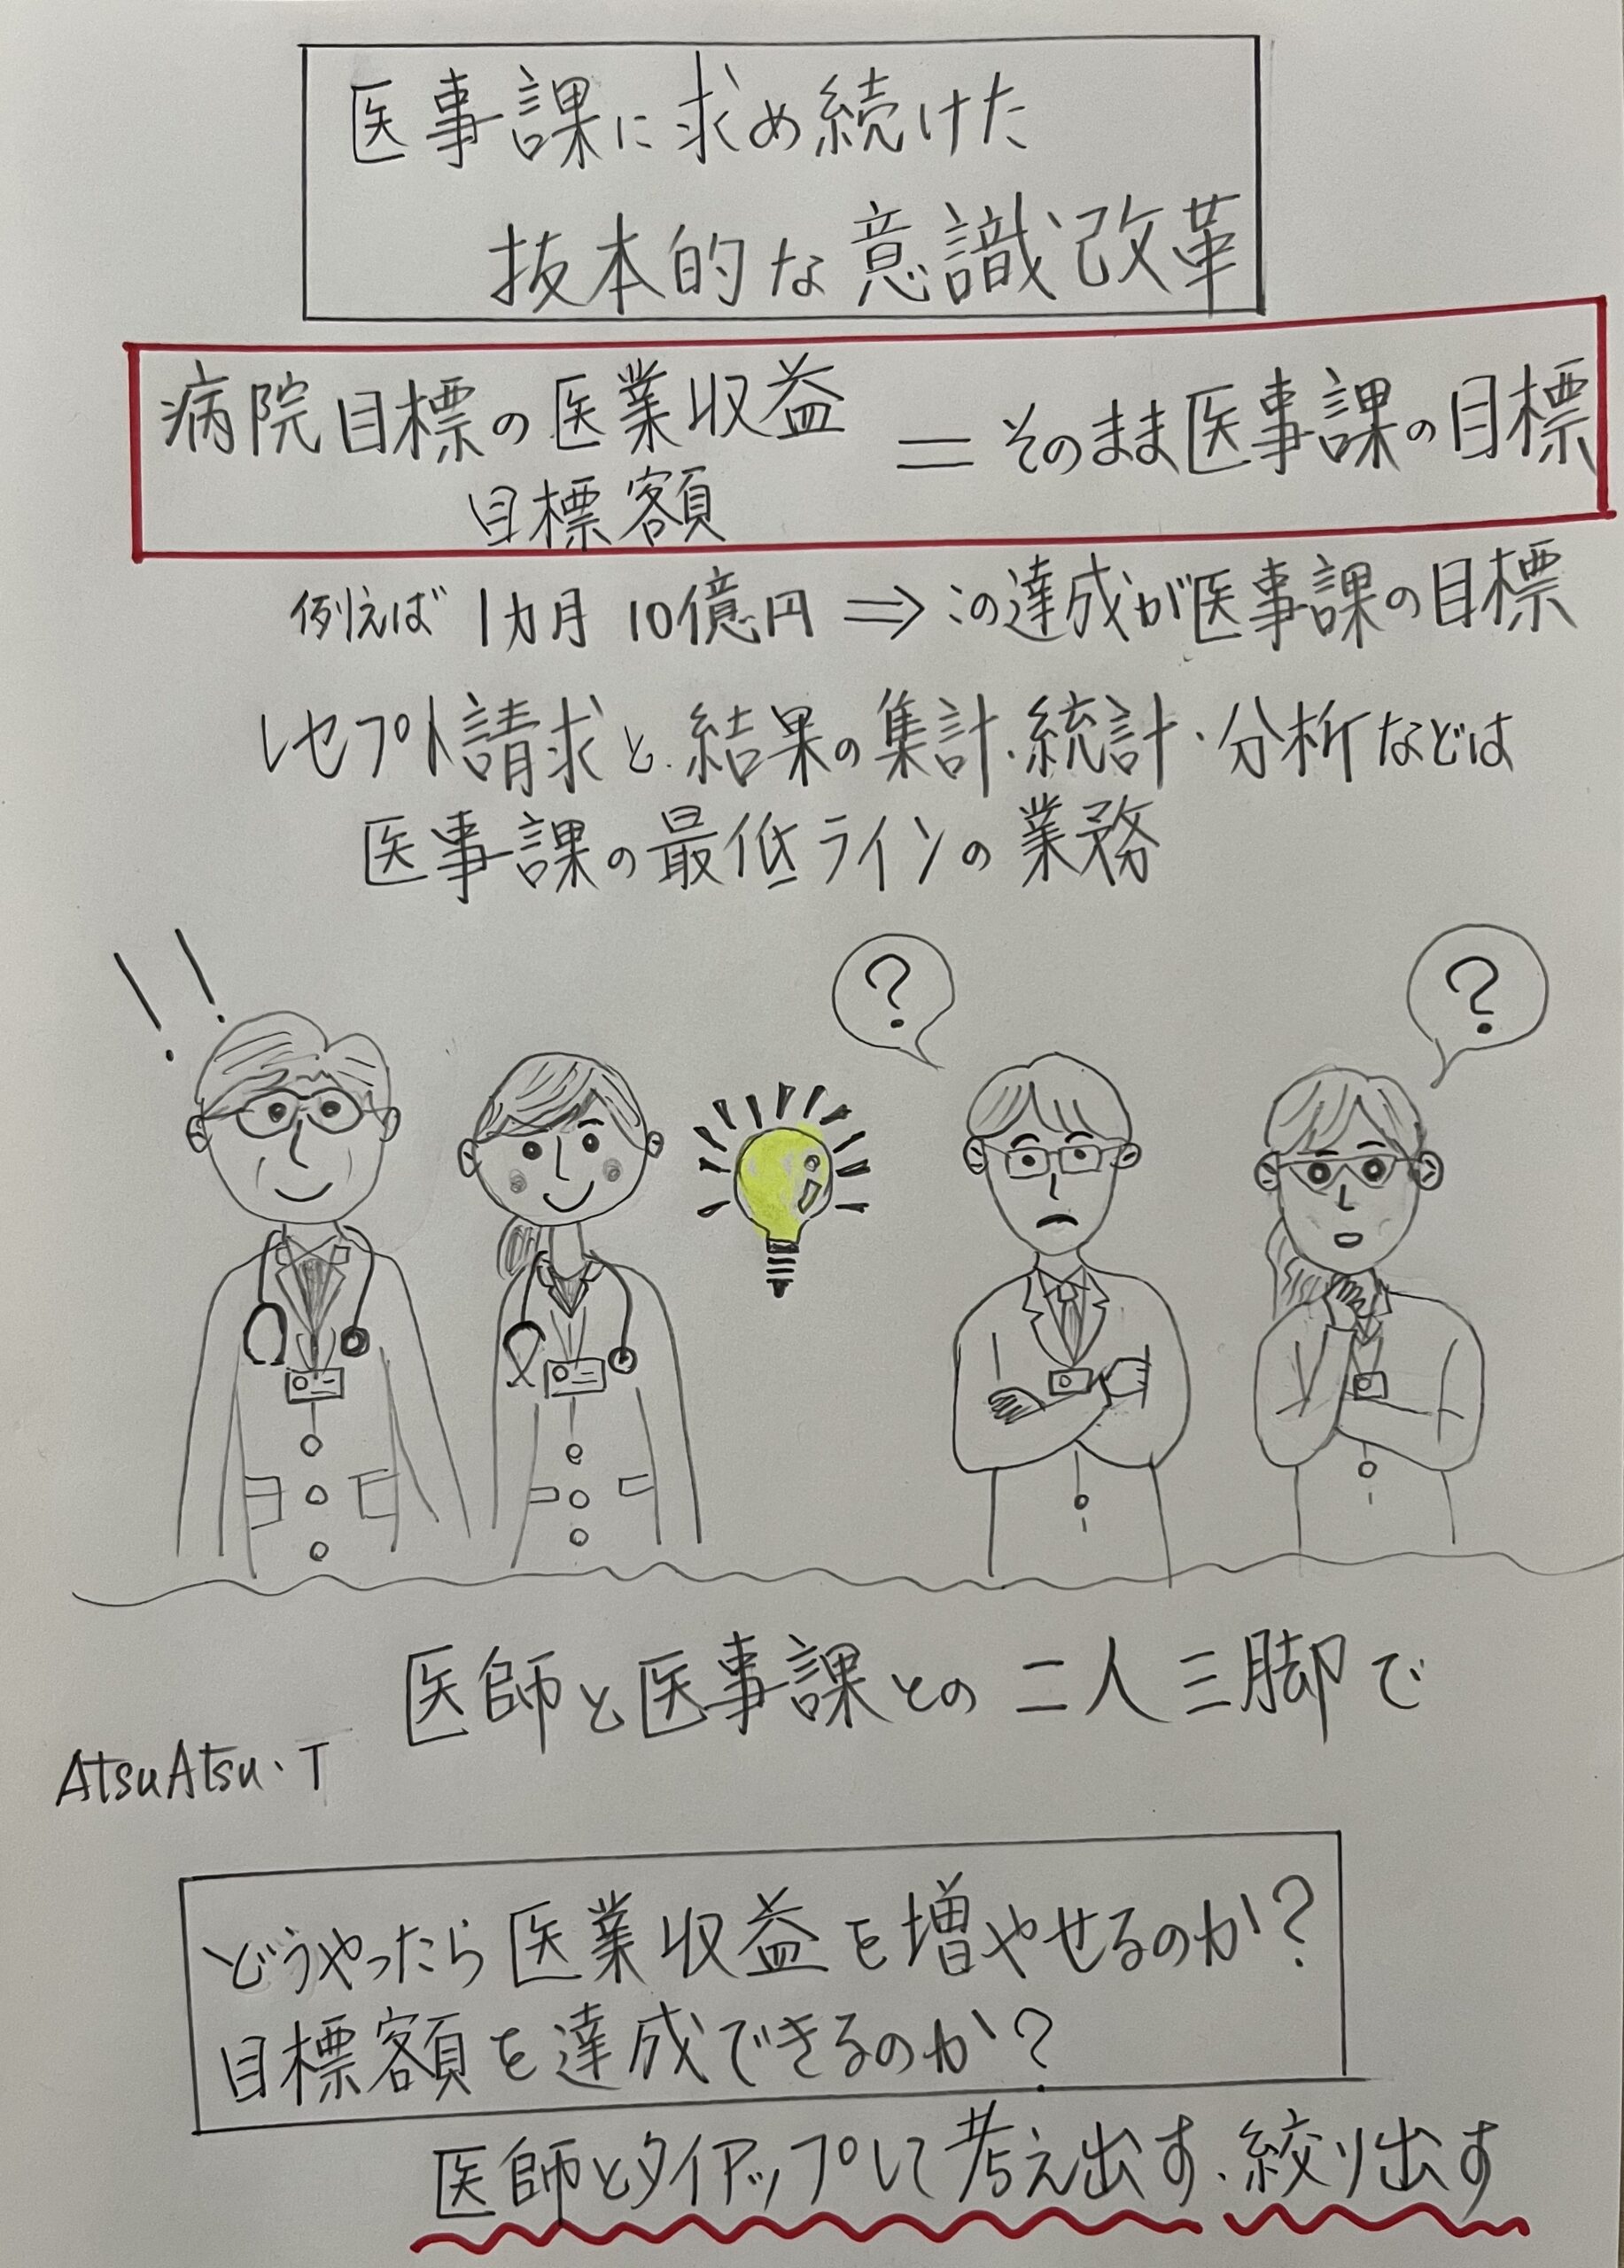 医事課に求め続けた
抜本的な意識改革
病院目標の医業収益
目標額
＝そのまま医事課の目標
例えば 1カ月 10億円 ⇒ この達成が医事課の目標
レセプト請求と、結果の集計、統計・分析などは
医事課の最低ラインの業務
!!
?
?
医師と医事課との二人三脚で
AtsuAtsu・T
どうやったら医業収益を増やせるのか?
目標額を達成できるのか?
医師とタイアップして考え出す、絞り出す